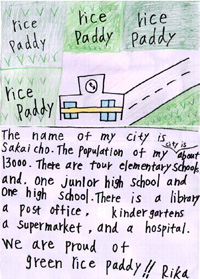 rice
Paddy
rice
Paddy
rice
Paddy
rice
Paddy
The name of my city is
Sakai cho. The Population of my city is about
13000. There are four elementary schools
and, one junior high school and
one high school. There is a library
a post office, kindergartens
a supermarket, and a hospital.
We are proud of
green rice paddy//
Rika